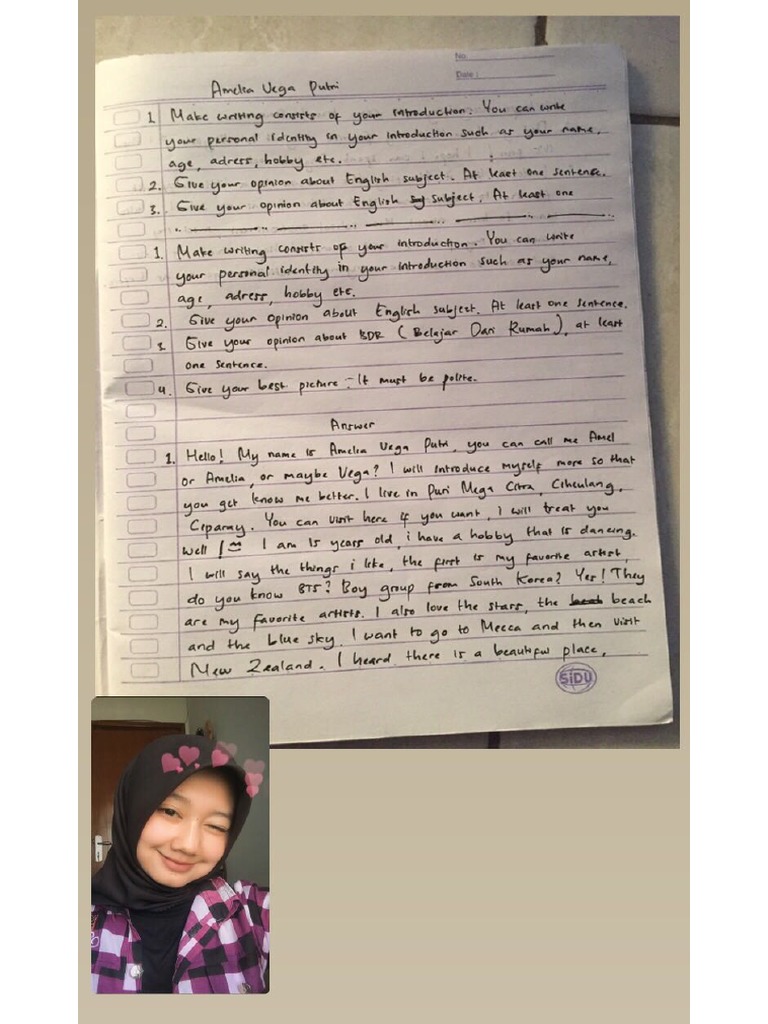 No.
Date :
Amelia Vega Putri
1. Make writing consists of your introduction. You can write
your personal identity in your introduction such as your name,
age, adress, hobby etc.
2. Give your opinion about English subject. At least one sentence.
3. Give your opinion about English subject. At least one
1. Make writing consists of your introduction. You can write
your personal identity in your introduction such as your name,
age, adress, hobby etc.
2. Give your opinion about English subject. At least one sentence.
3. Give your opinion about BDR (Belajar Dari Rumah), at least
one sentence.
4. Give your best picture - It must be polite.
Answer
1. Hello! My name is Amelia Vega Putri, you can call me Amel
or Amelia, or maybe Vega? I will introduce myself more so that
you get know me better. I live in Puri Mega Citra, Ciheulang,
Ciparay. You can visit here if you want, i will treat you
well! I am 15 years old, i have a hobby that is dancing.
I will say the things i like, the first is my favorite artist,
do you know BTS? Boy group from South Korea? Yes! They
are my favorite artists. I also love the stars, the beach
and the blue sky. I want to go to Mecca and then visit
New Zealand. I heard there is a beautiful place,
SiDU